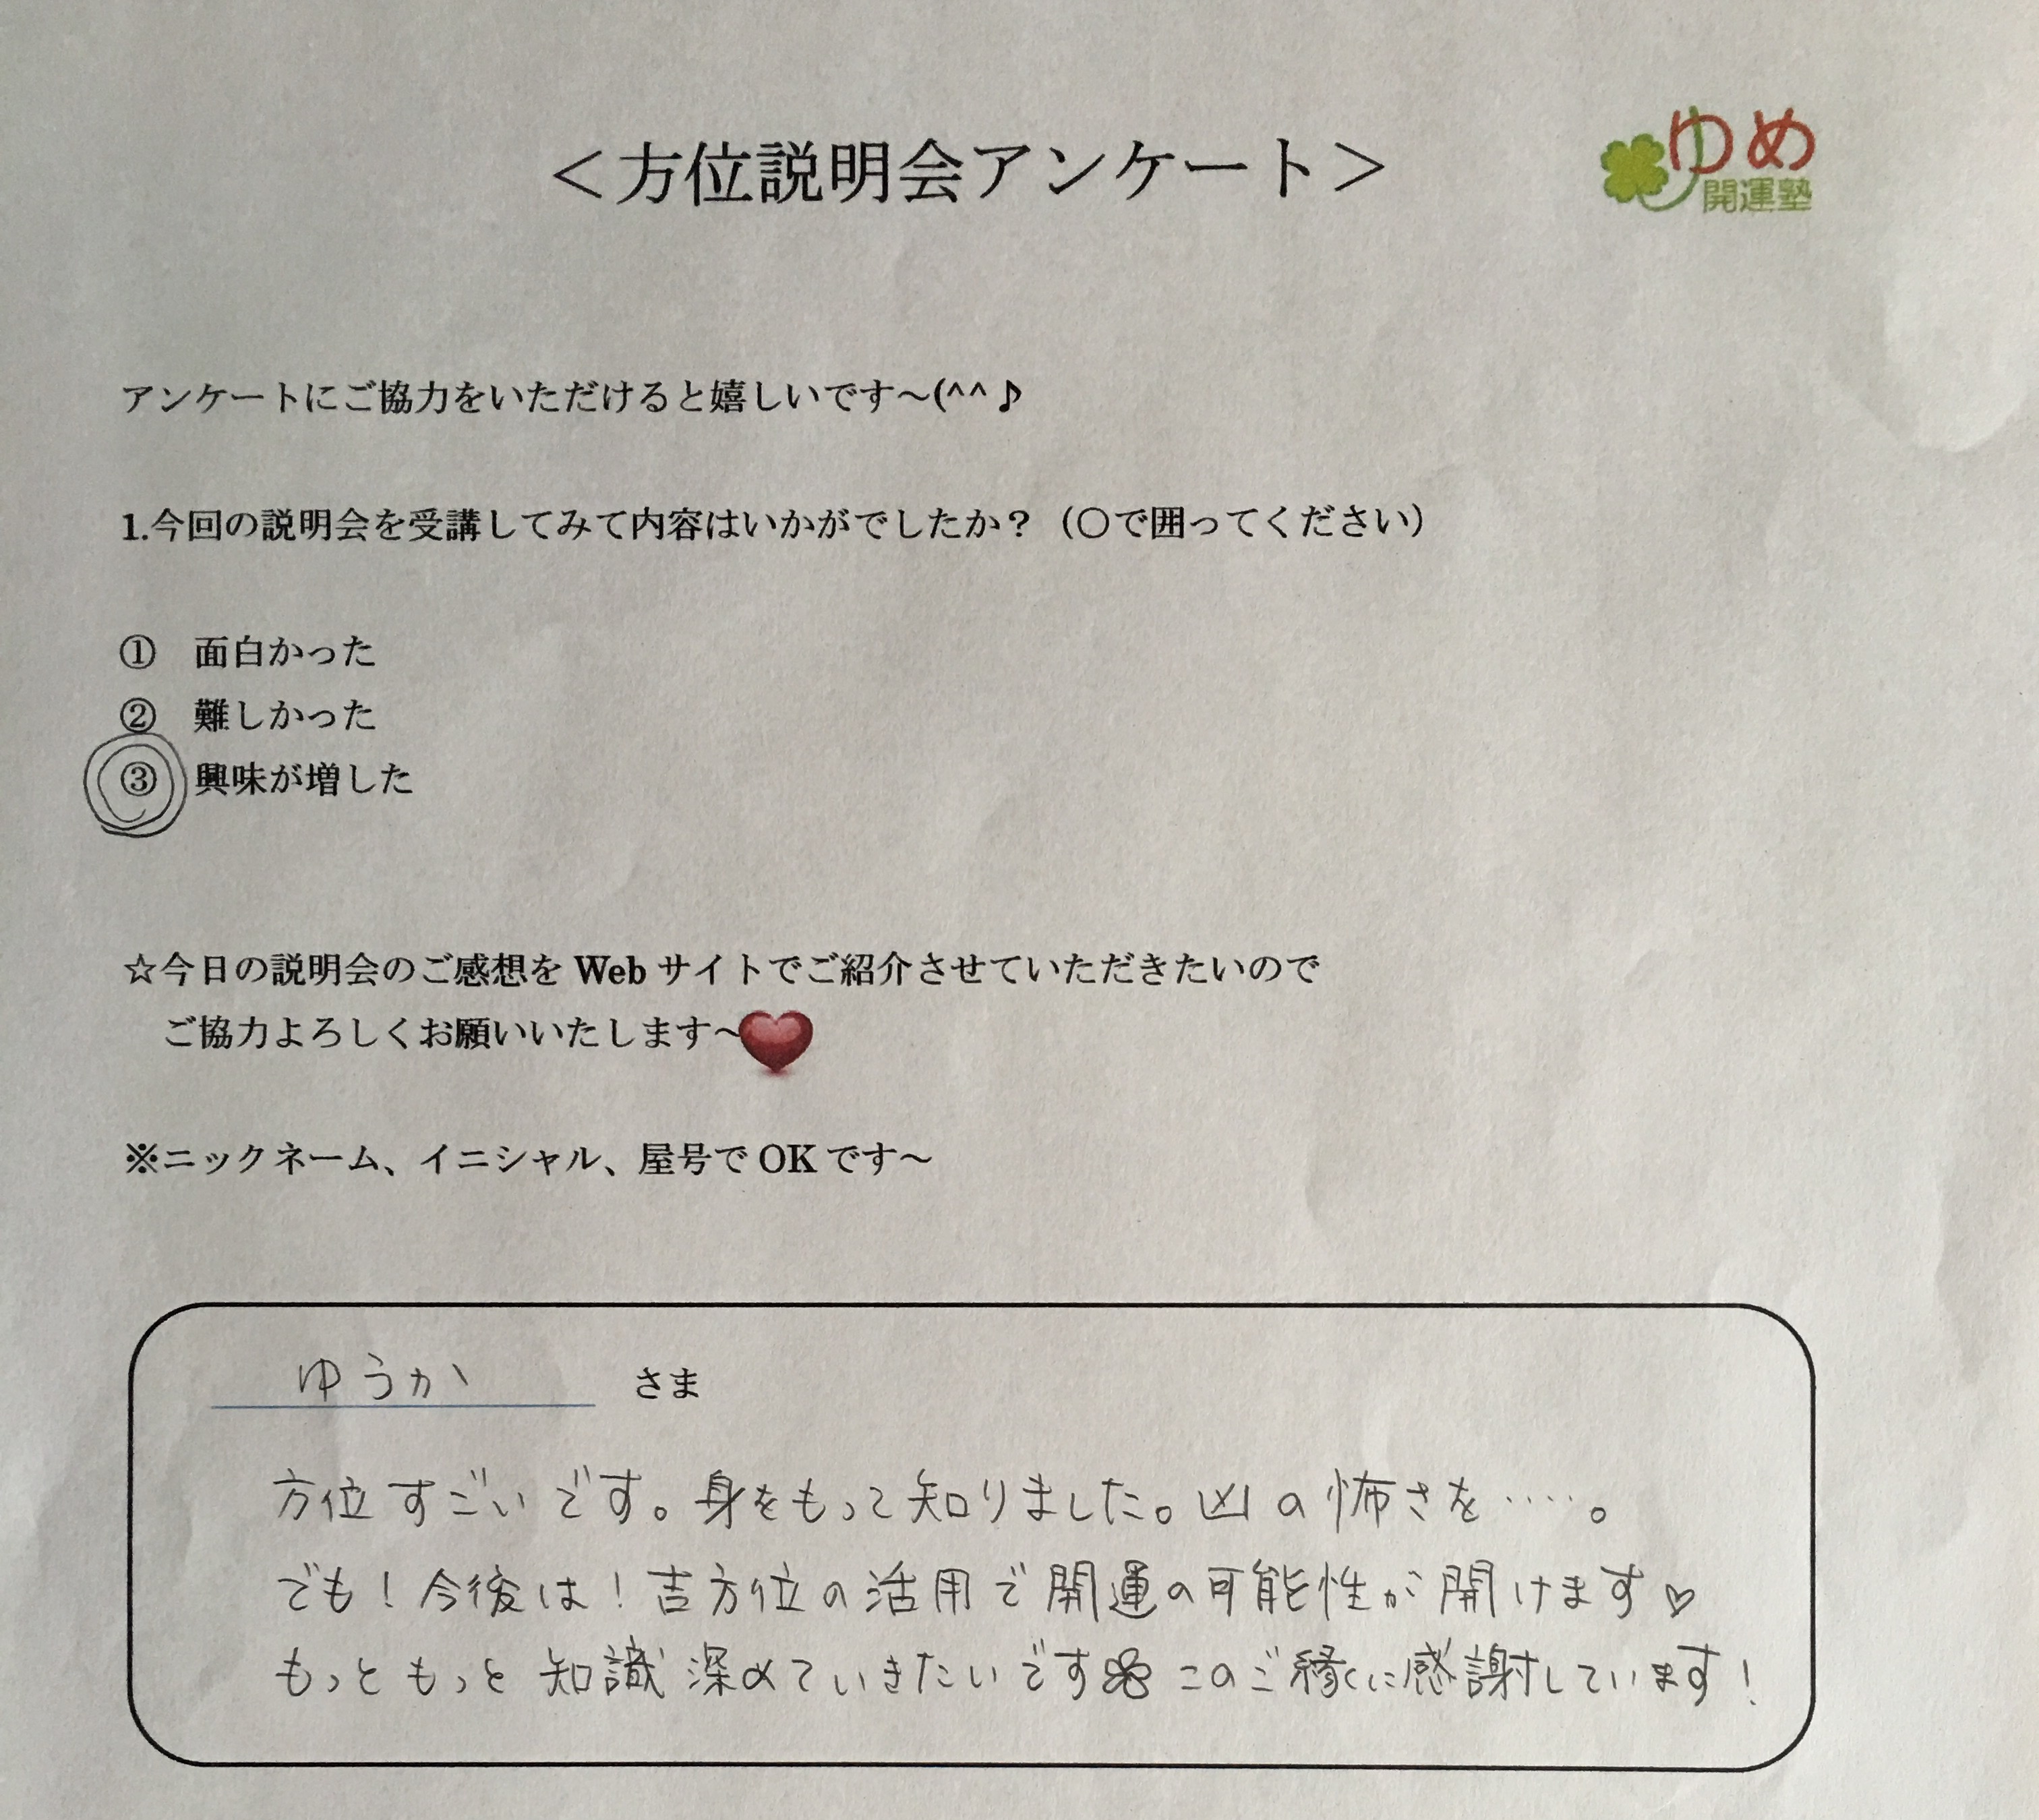 ＜方位説明会アンケート＞
ゆめ
開運塾
アンケートにご協力をいただけると嬉しいです～(^^♪
1.今回の説明会を受講してみて内容はいかがでしたか？（〇で囲ってください）
① 面白かった
② 難しかった
③ 興味が増した
☆今日の説明会のご感想を Web サイトでご紹介させていただきたいので
ご協力よろしくお願いいたします～
※ニックネーム、イニシャル、屋号で OK です～
ゆうか さま
方位すごいです。身をもって知りました。凶の怖さを‥‥。
でも！今後は！吉方位の活用で開運の可能性が開けます♡
もっともっと知識深めていきたいです このご縁に感謝しています！